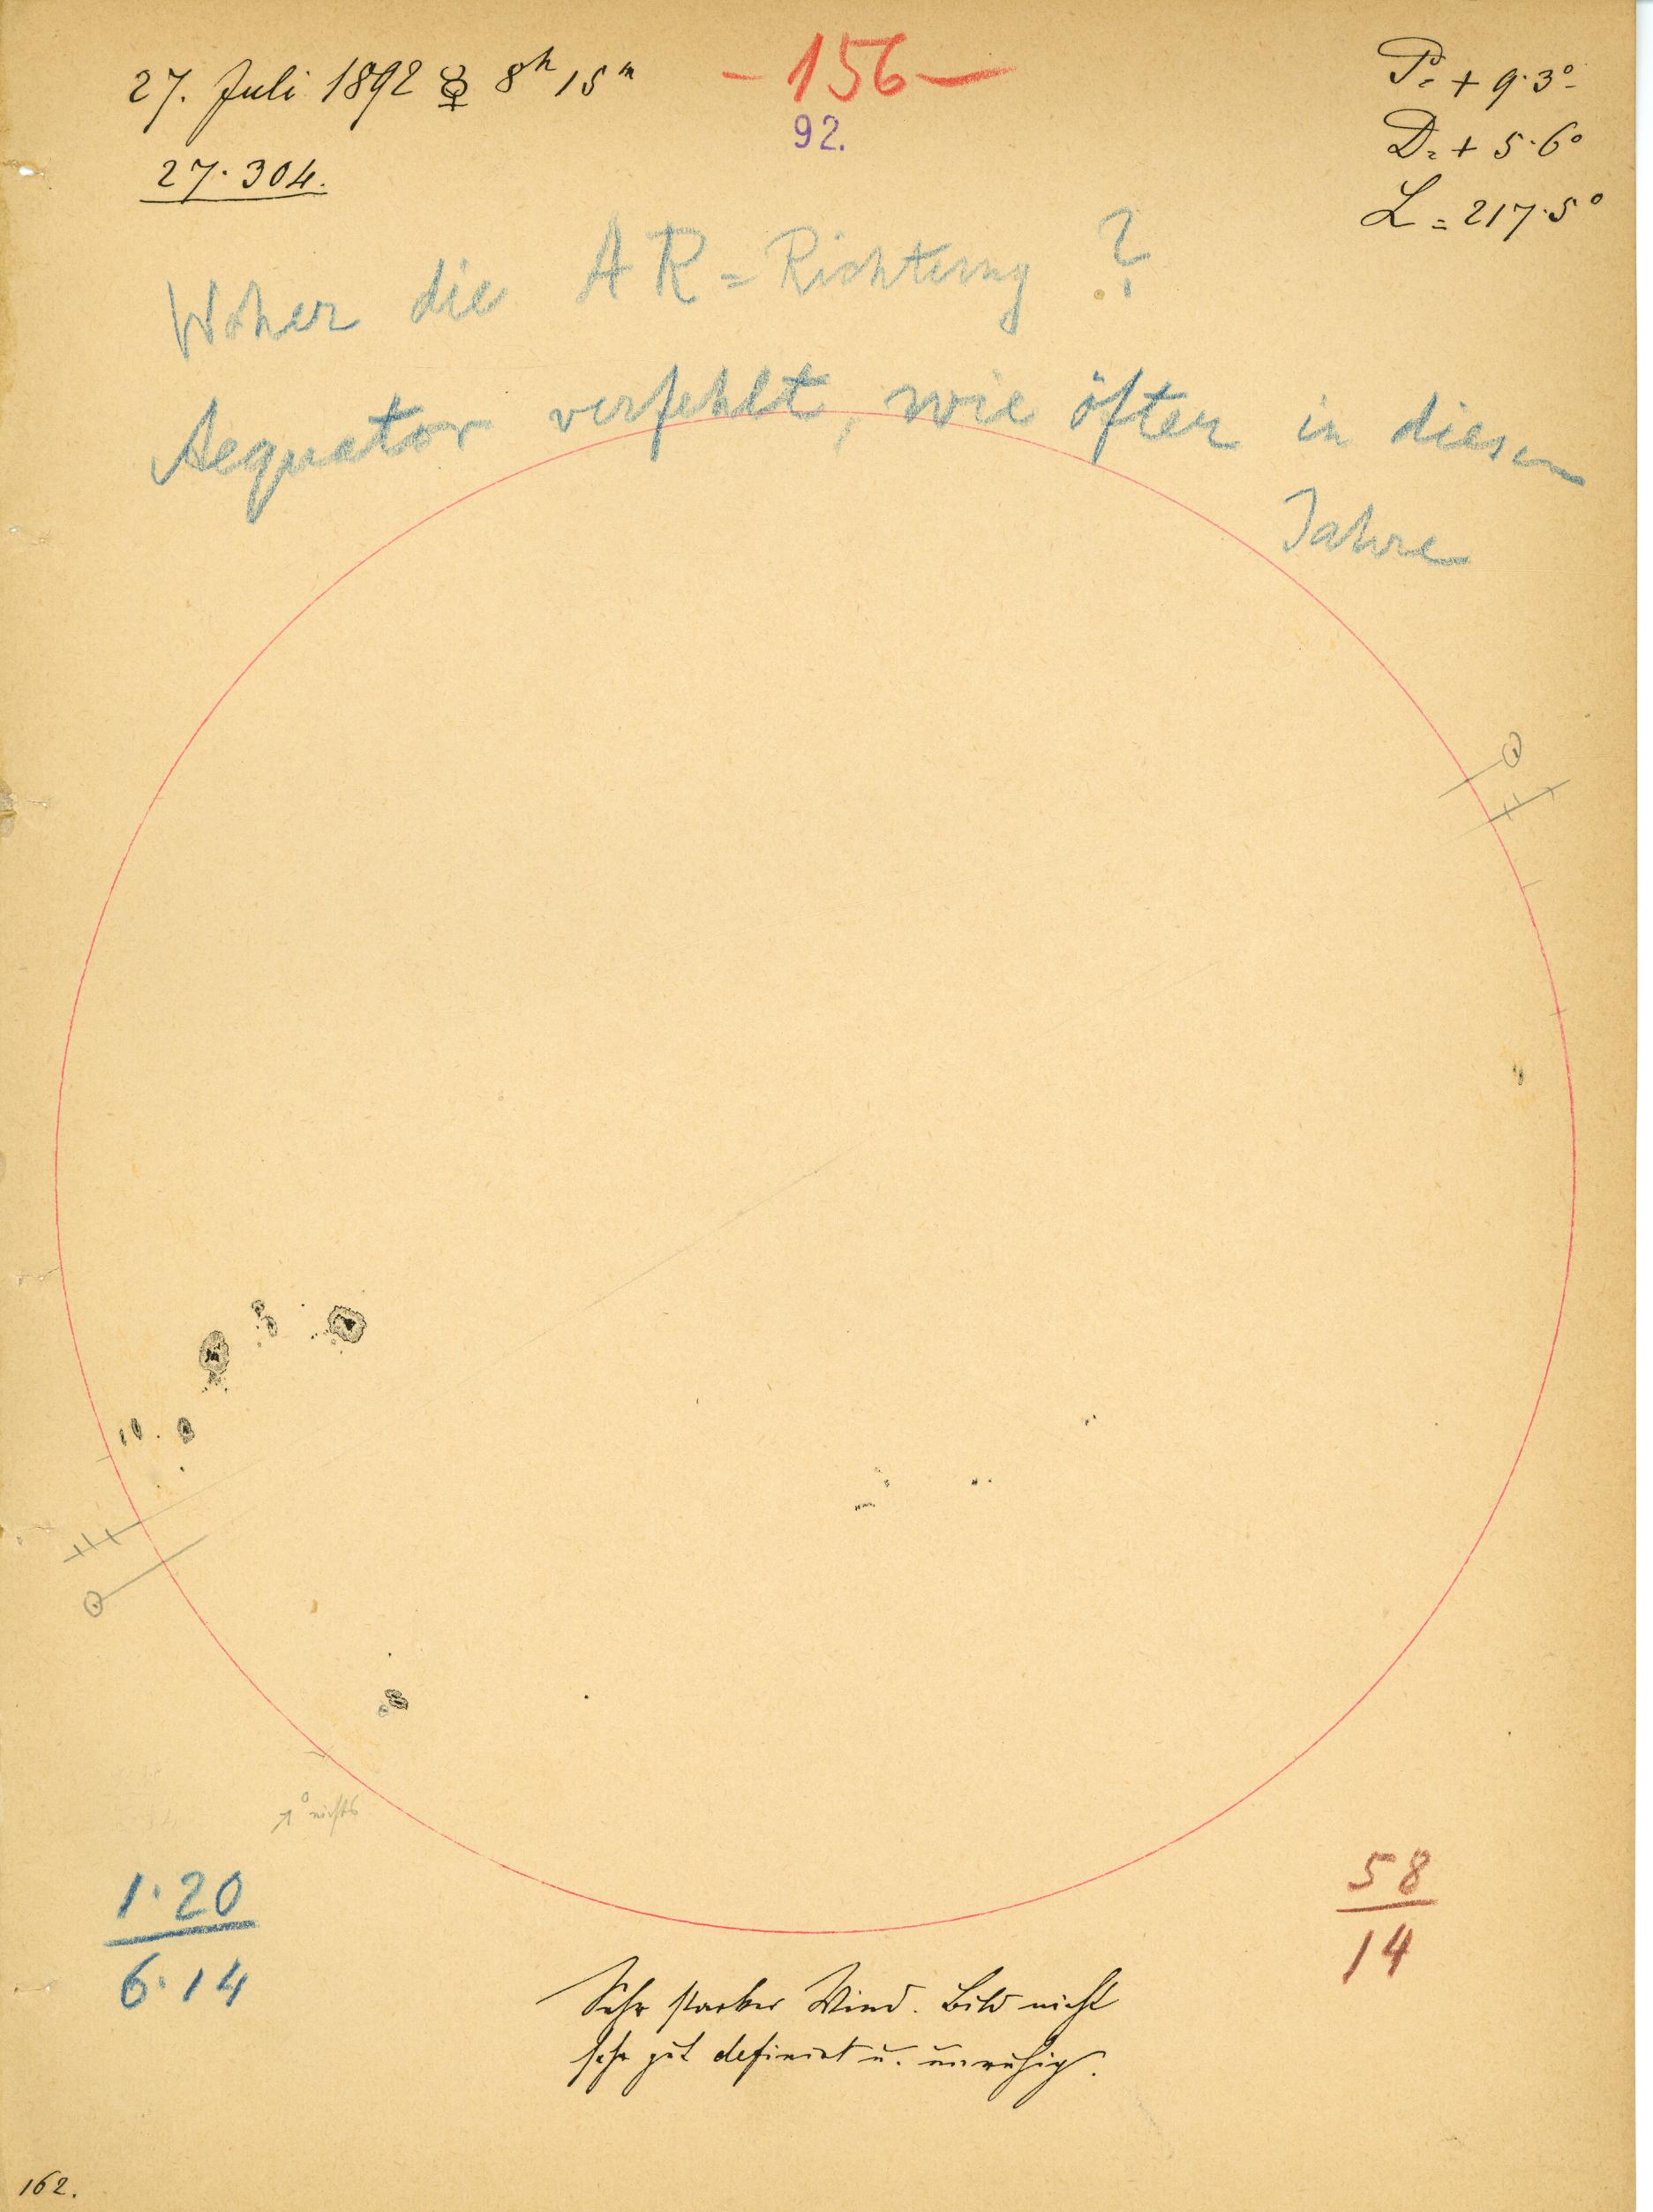 27. Juli 1892 ☿ 8h 15m
27.304.
-156-
92.
P = + 9.3°
D = + 5.6°
L = 217.5°
Woher die AR=Richtung?
Aequator verfehlt, wie öfter in diesem
Jahre
nichts
1.20
6.14
58
14
Sehr starker Wind. Bild nicht
sehr gut definirt u. unruhig.
162.